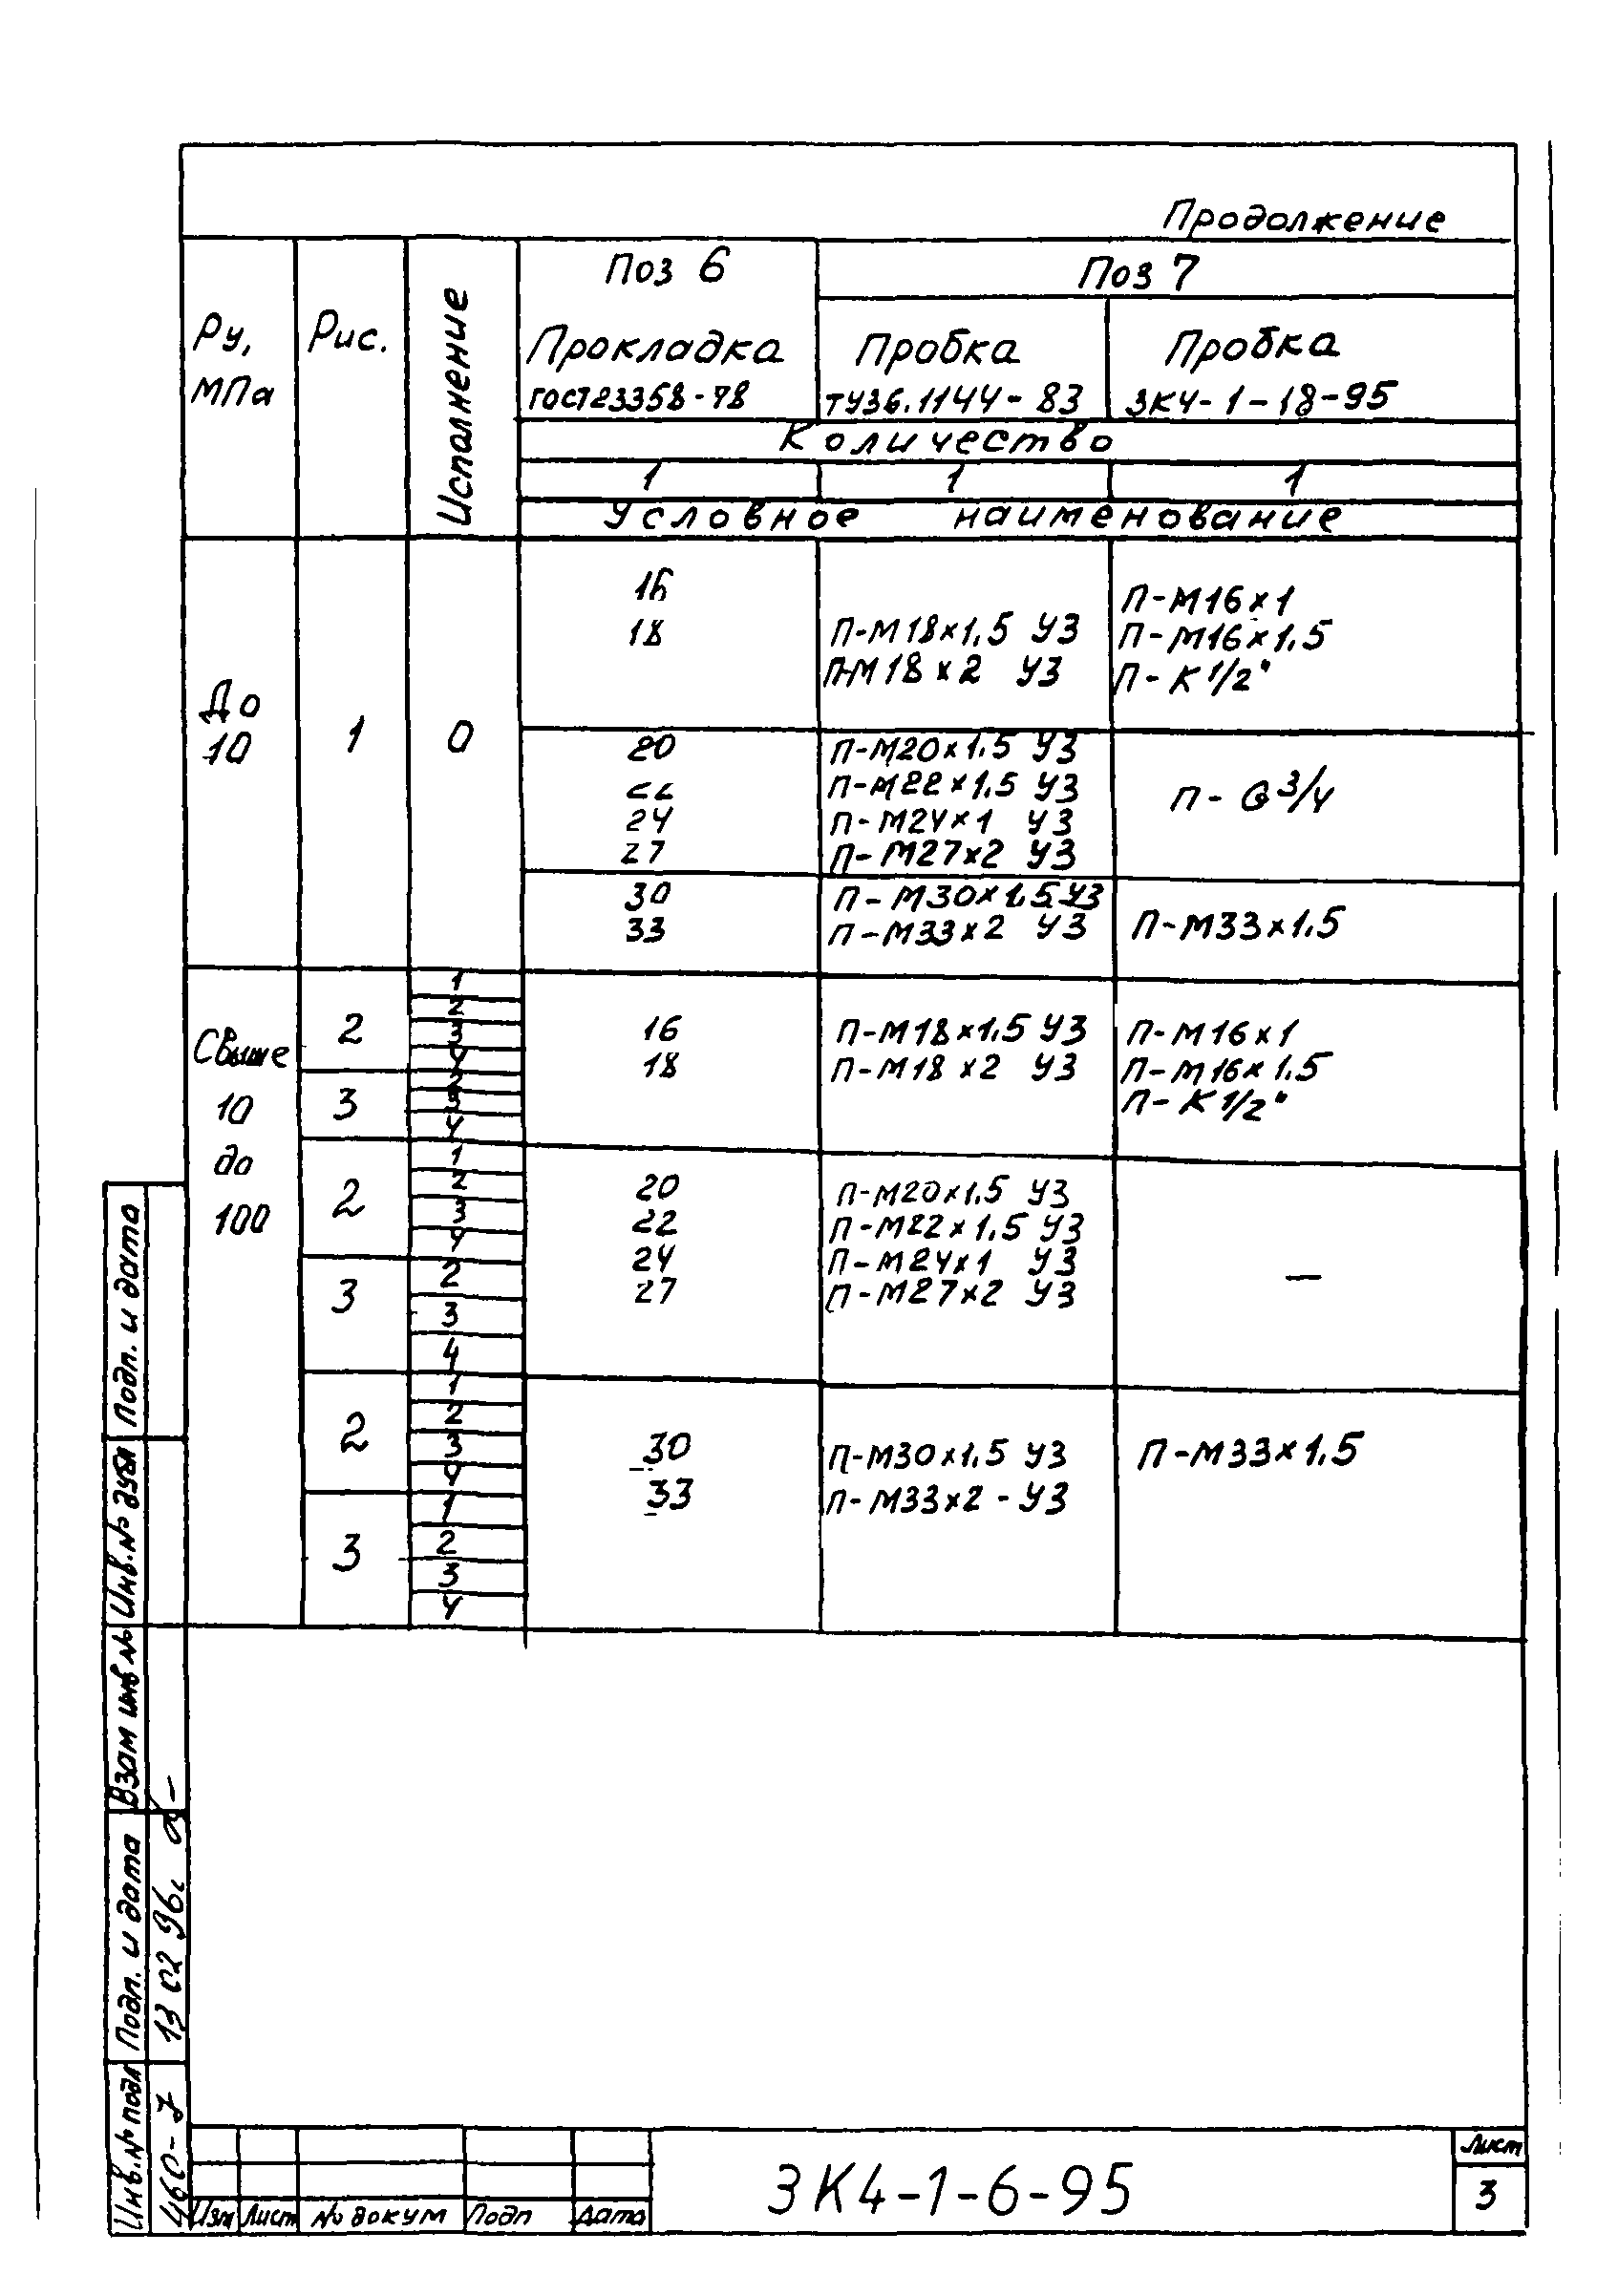 Продолжение
Ру, МПа
Рис.
Исполнение
Поз 6
Прокладка
ГОСТ23358-78
Поз 7
Пробка
ТУ36.1144-83
Пробка
ЗК4-1-18-95
Количество
1 1 1
Условное наименование
До 10
1
0
16
18
П-М18×1,5 У3
П-М18×2 У3
П-М16×1
П-М16×1,5
П-К 1/2"
20 П-М20×1.5 У3
22 П-М22×1.5 У3
24 П-М24×1 У3
27 П-М27×2 У3
П-G 3/4
30 П-М30×1.5 У3
33 П-М33×2 У3
П-М33×1.5
Свыше
10
до
100
2
1
2
3
4
3
2
3
4
16 П-М18×1,5 У3 П-М16×1
18 П-М18×2 У3 П-М16×1,5
П-К 1/2"
2
1
2
3
4
3
2
3
4
20 П-М20×1,5 У3
22 П-М22×1,5 У3
24 П-М24×1 У3
27 П-М27×2 У3
—
2
1
2
3
4
3
1
2
3
4
30 П-М30×1,5 У3 П-М33×1,5
33 П-М33×2-У3
Подп. и дата
Инв.№ дубл
Взам инв №
Подп. и дата
13 02 96г
Инв.№ подл
460-7
Изм Лист № докум Подп Дата
ЗК4-1-6-95
Лист
3